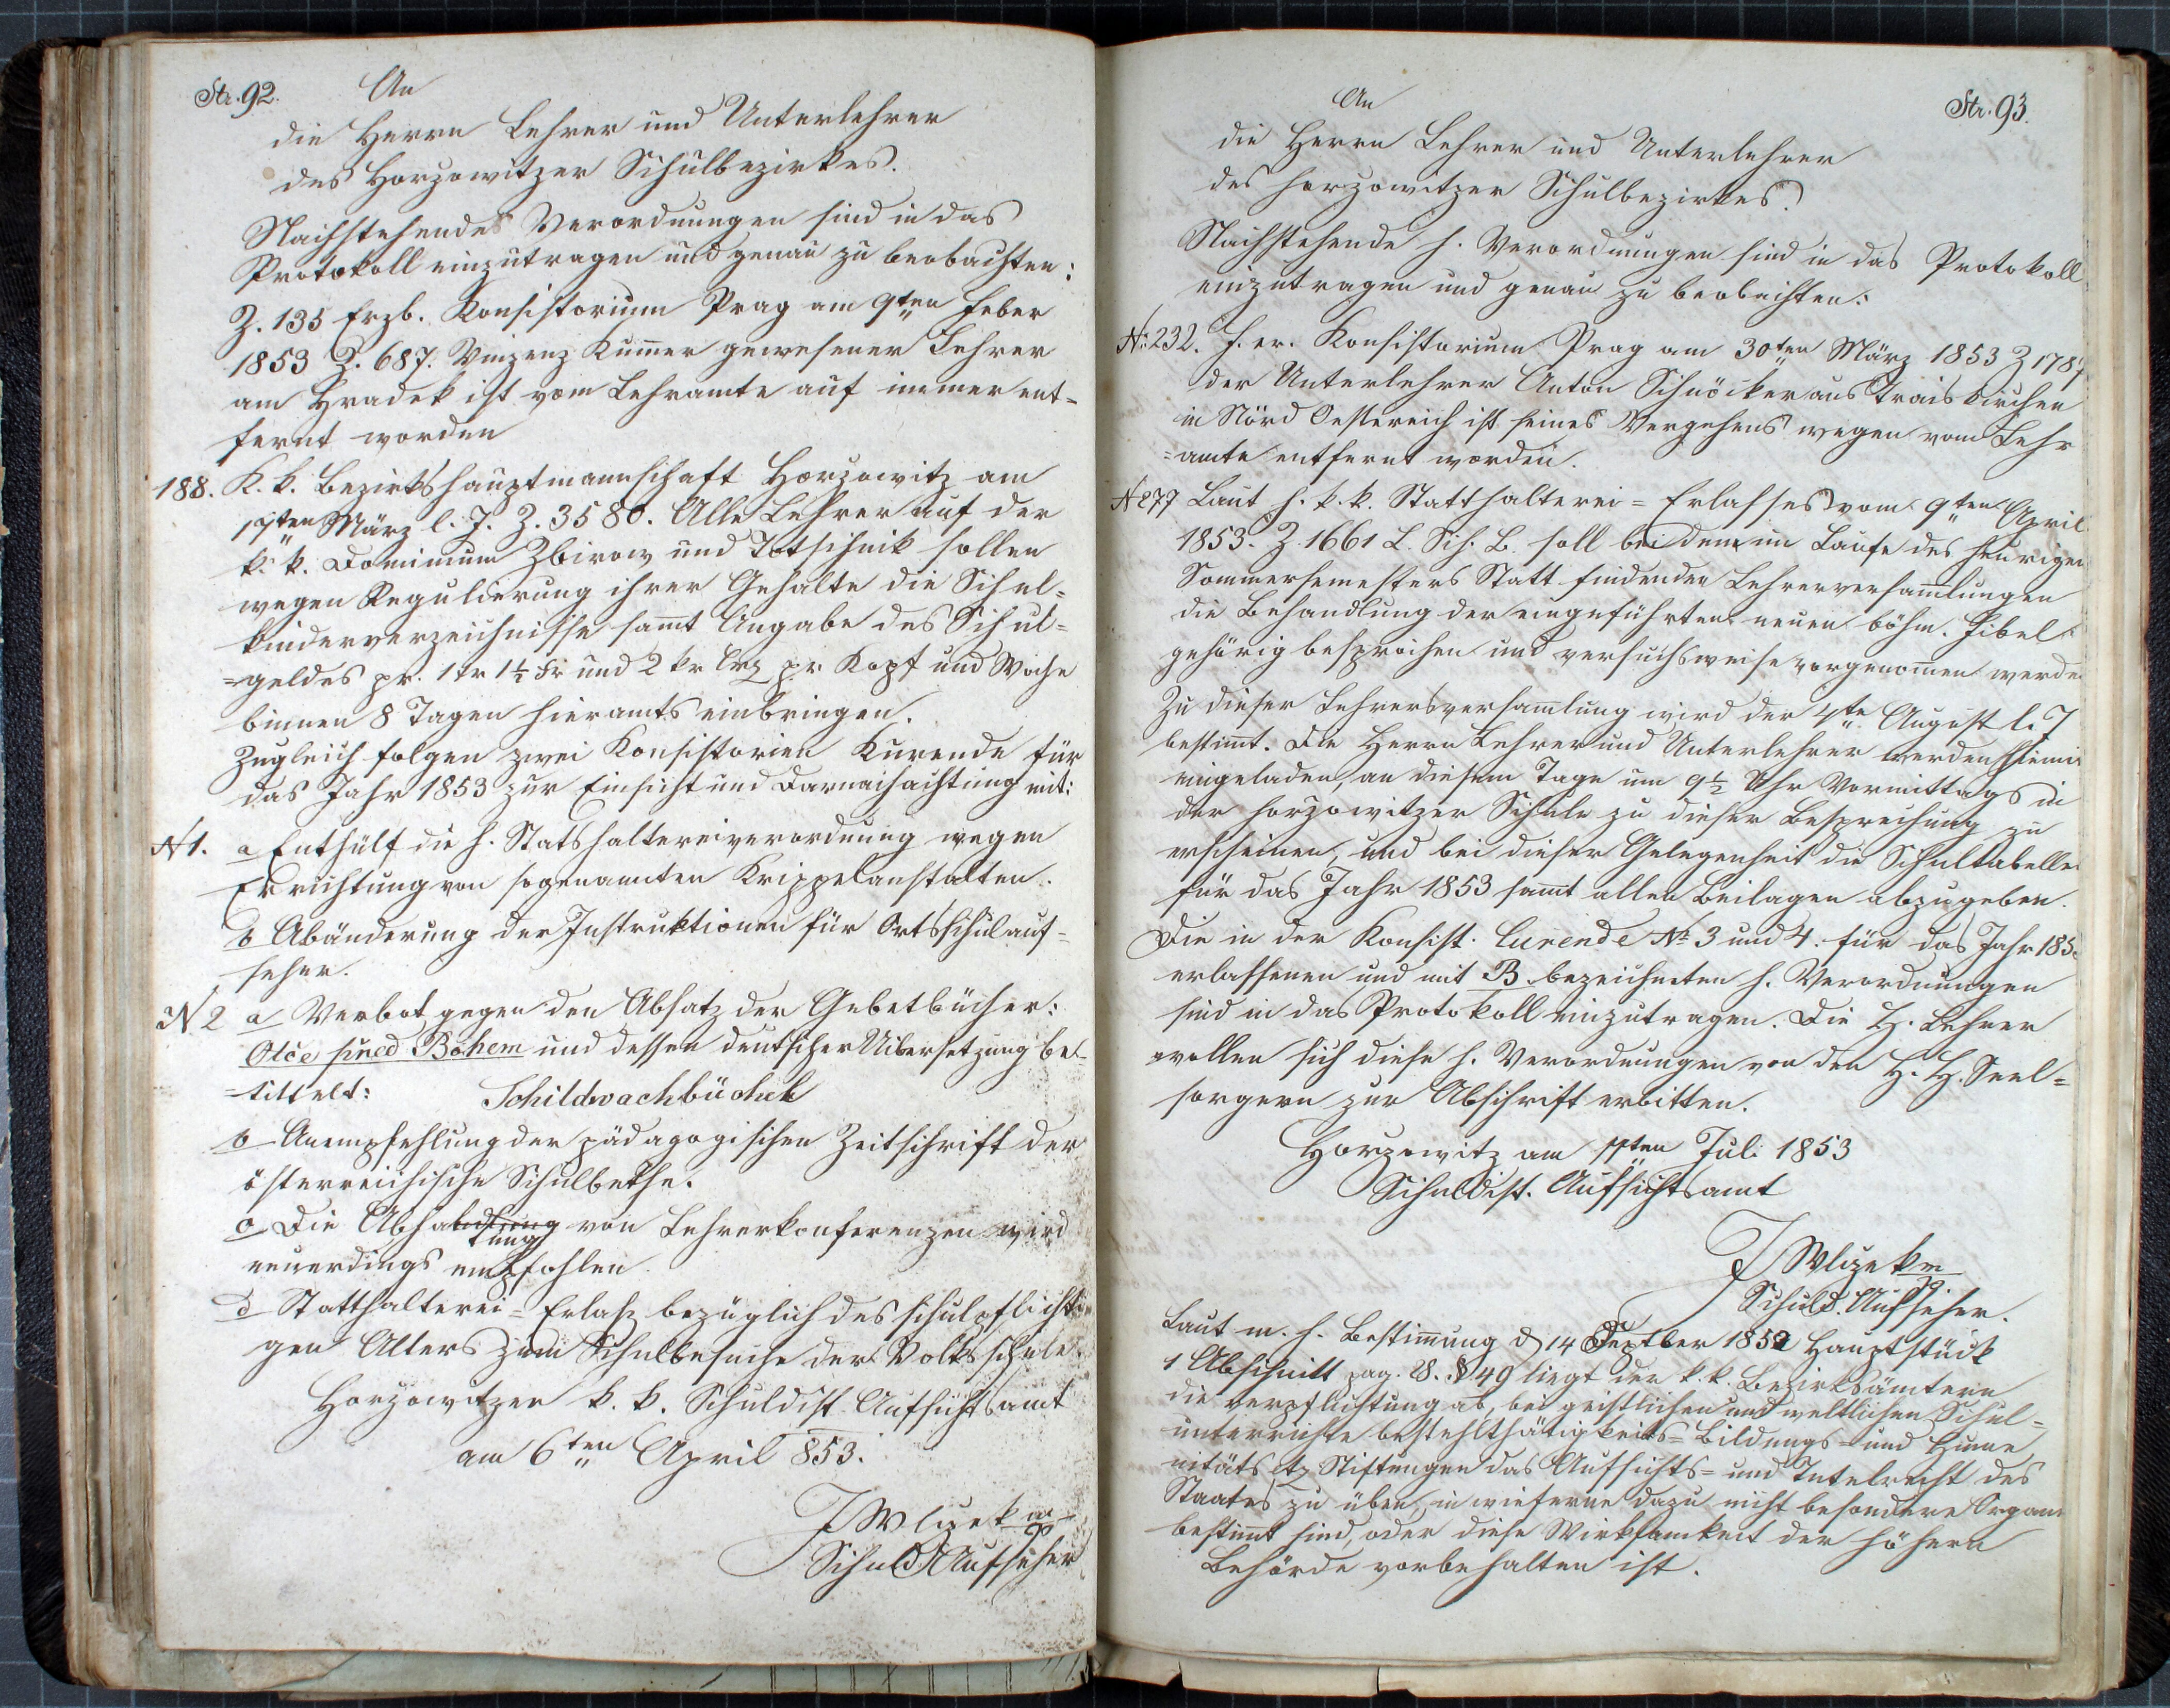 Str. 92.
An
die Herrn Lehrer und Unterlehrer
des Horzowitzer Schulbezirkes.
Nachstehendes Verordnungen sind in das
Protokoll einzutragen und genau zu beobachten:
Z. 135 Erzb. Konsistorium Prag am 9ten Feber
1853 Z. 687. Vinzenz Kum̅er gewesener Lehrer
am Hradek ist vom Lehramte auf immer ent=
fernt worden
188. K. k. Bezirkshauptmannschaft Horzowitz am
17ten März l. J. Z. 3580. Alle Lehrer auf der
k. k. Dominium Zbirow und Totschnik sollen
wegen Regulierung ihrer Gehalte die Schul=
kinderverzeichnisse sam̅t Angabe des Schul=
=geldes pr. 1 kr 1½ kr und 2 kr pr Kopf und Woche
binnen 8 Tagen hieramts einbringen.
Zugleich folgen zwei Konsistorien Kurende für
das Jahr 1853 zur Einsicht und Darnachachtung mit:
N 1. a Enthält die h. Statshaltereiverordnung wegen
Errichtung von sogenannten Krippelanstalten.
b Abänderung der Instruktionen für Ortsschulauf=
seher.
N 2 a Verbot gegen den Absatz der Gebetbücher:
Otče před Bohem und dessen deutscher Uibersetzung be=
=tittelt: Schildwachbüchel
b Anempfehlung der pädagogischen Zeitschrift der
österreichische Schulbothe.
c Die Abhaltung von Lehrerkonferenzen wird
neuerdings empfohlen.
d Statthalterei=Erlaß bezüglich des schulpflichti=
gen Alters zum Schulbesuche der Volksschule
Horzowitzer k. k. Schuldist. Aufsichtsamt
am 6ten April 853.
J Wlczek
Schuld Aufseher
Str. 93.
An
die Herrn Lehrer und Unterlehrer
des horzowitzer Schulbezirkes.
Nachstehende h. Verordnungen sind in das Protokoll
einzutragen und genau zu beobachten:
N: 232. f. er. Konsistorium Prag am 30ten März 1853 Z 1787
der Unterlehrer Anton Schnöcker aus Traiskirchen
in Nörd Oestereich ist seines Vergehens wegen vom Lehr
=amte entfernt worden.
N 277 Laut h. k. k. Statthalterei=Erlasses vom 9ten April
1853. Z. 1661 L. Sch. B. soll bei den im Laufe des heurigen
Sommersemesters Statt findenden Lehrerversam̅lungen
die Behandlung der eingeführten neuen böhm. Fibel
gehörig besprochen und versuchsweise vorgenom̅en werde
Zu dieser Lehrersversam̅lung wird der 4te August l. J
bestim̅t. Die Herrn Lehrer und Unterlehrer werden hiemi
eingeladen, an diesem Tage um 9½ Uhr Vormittags in
der horzowitzer Schule zu dieser Besprechung zu
erscheinen, und bei dieser Gelegenheit die Schultabelle
für das Jahr 1853 sam̅t allen Beilagen abzugeben.
Die in der Konsist. Curende No 3 und 4. für das Jahr 185
erlassenen und mit B. bezeichneten h. Verordnungen
sind in das Protokoll einzutragen. Die H. Lehrer
wollen sich diese h. Verordnungen von den H. H. Seel=
sorgern zur Abschrift erbitten.
Horzowitz am 11ten Juli 1853
Schuldist. Aufsichtsamt
J Wlczek
Schuld. Aufseher.
Laut m. h. Bestim̅ung d 14 Septber 1852 Hauptstück
1 Abschnitt pag. 28. § 49 liegt der k. k. Bezirksämtern
die verpflichtung ob, bei geistlichen und weltlichen Schul=
unterrichte Bildungs= und Huma
nitäts etz Stiftungen das Aufsichts= und Tutelrecht des
Staates zu üben, in wieferne dazu nicht besondere Organe
bestim̅t sind, oder diese Wirksamkeit der höhern
Behörde vorbehalten ist.